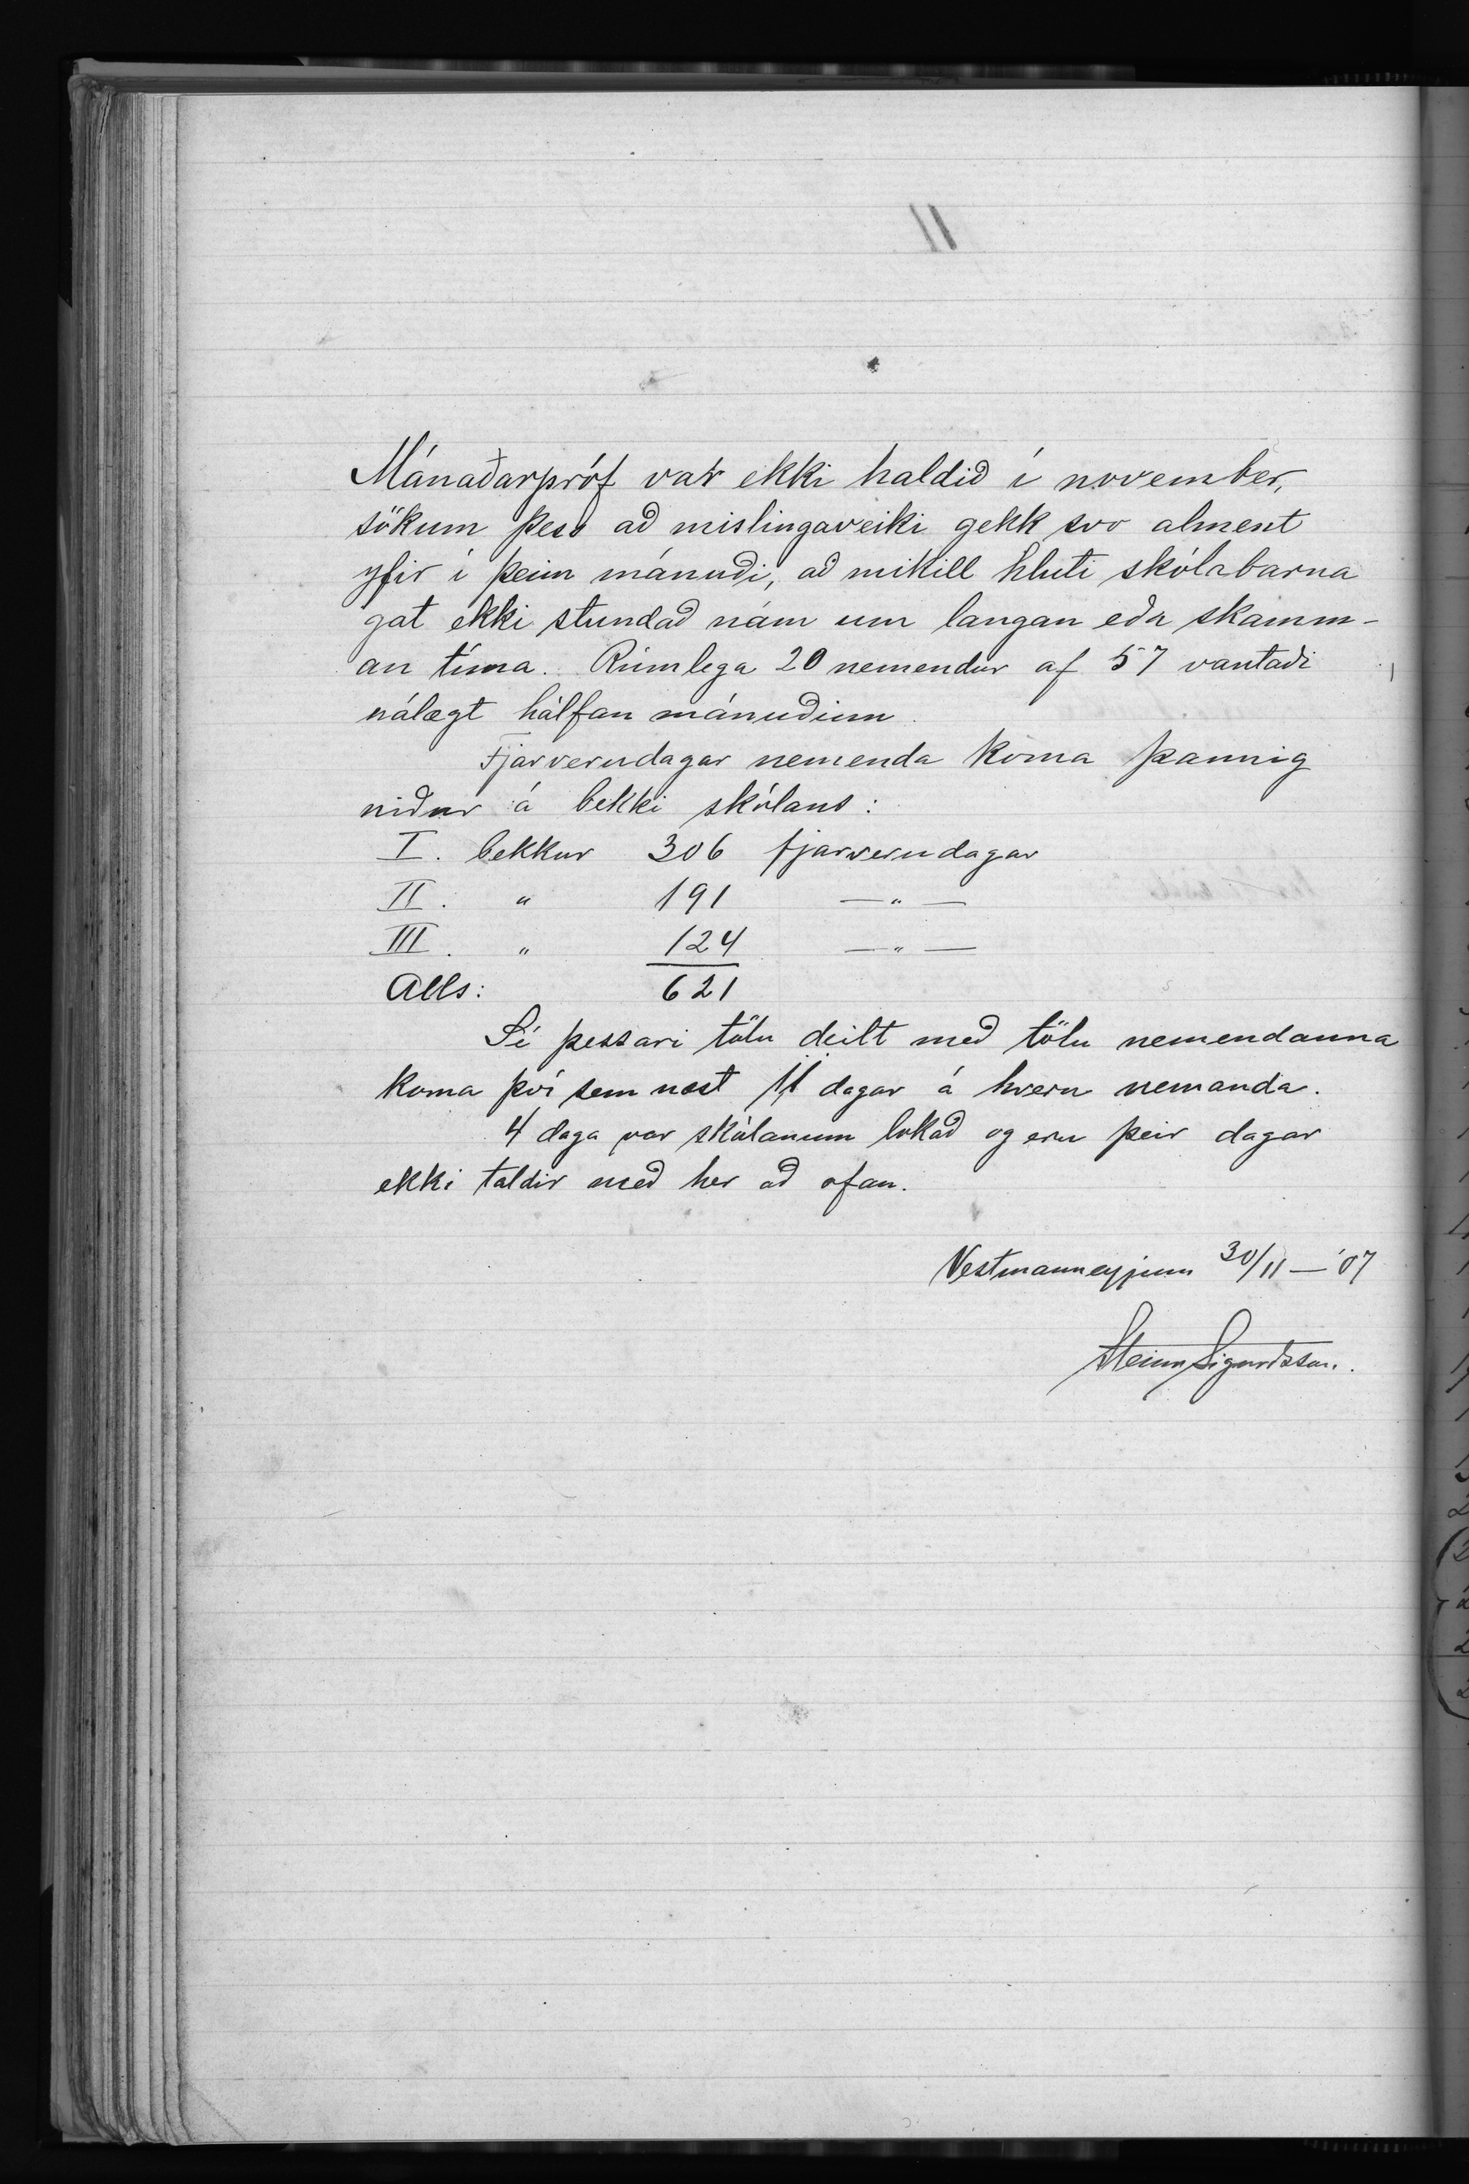 Mánaðarpróf var ekki haldið í november,
sökum þess að mislingaveiki gekk svo alment
yfir í þeim mánuði, að mikill hluti skólabarna
gat ekki stundað nám um langan eða skamm-
an tíma. Rúmlega 20 nemendur af 57 vantaði
nálægt hálfan mánuðinn.
Fjarverudagar nemenda koma þannig
niður á bekki skólans:
I. bekkur 306 fjarverudagar
II. " 191 —"—
III. " 124 —"—
Alls: 621
Sé þessari tölu deilt með tölu nemendanna
koma því sem næst 11 dagar á hvern nemanda.
4 daga var skólanum lokað og eru þeir dagar
ekki taldir með hér að ofan.
Vestmanneyjum 30/11 — '07
Steinn Sigurðsson.